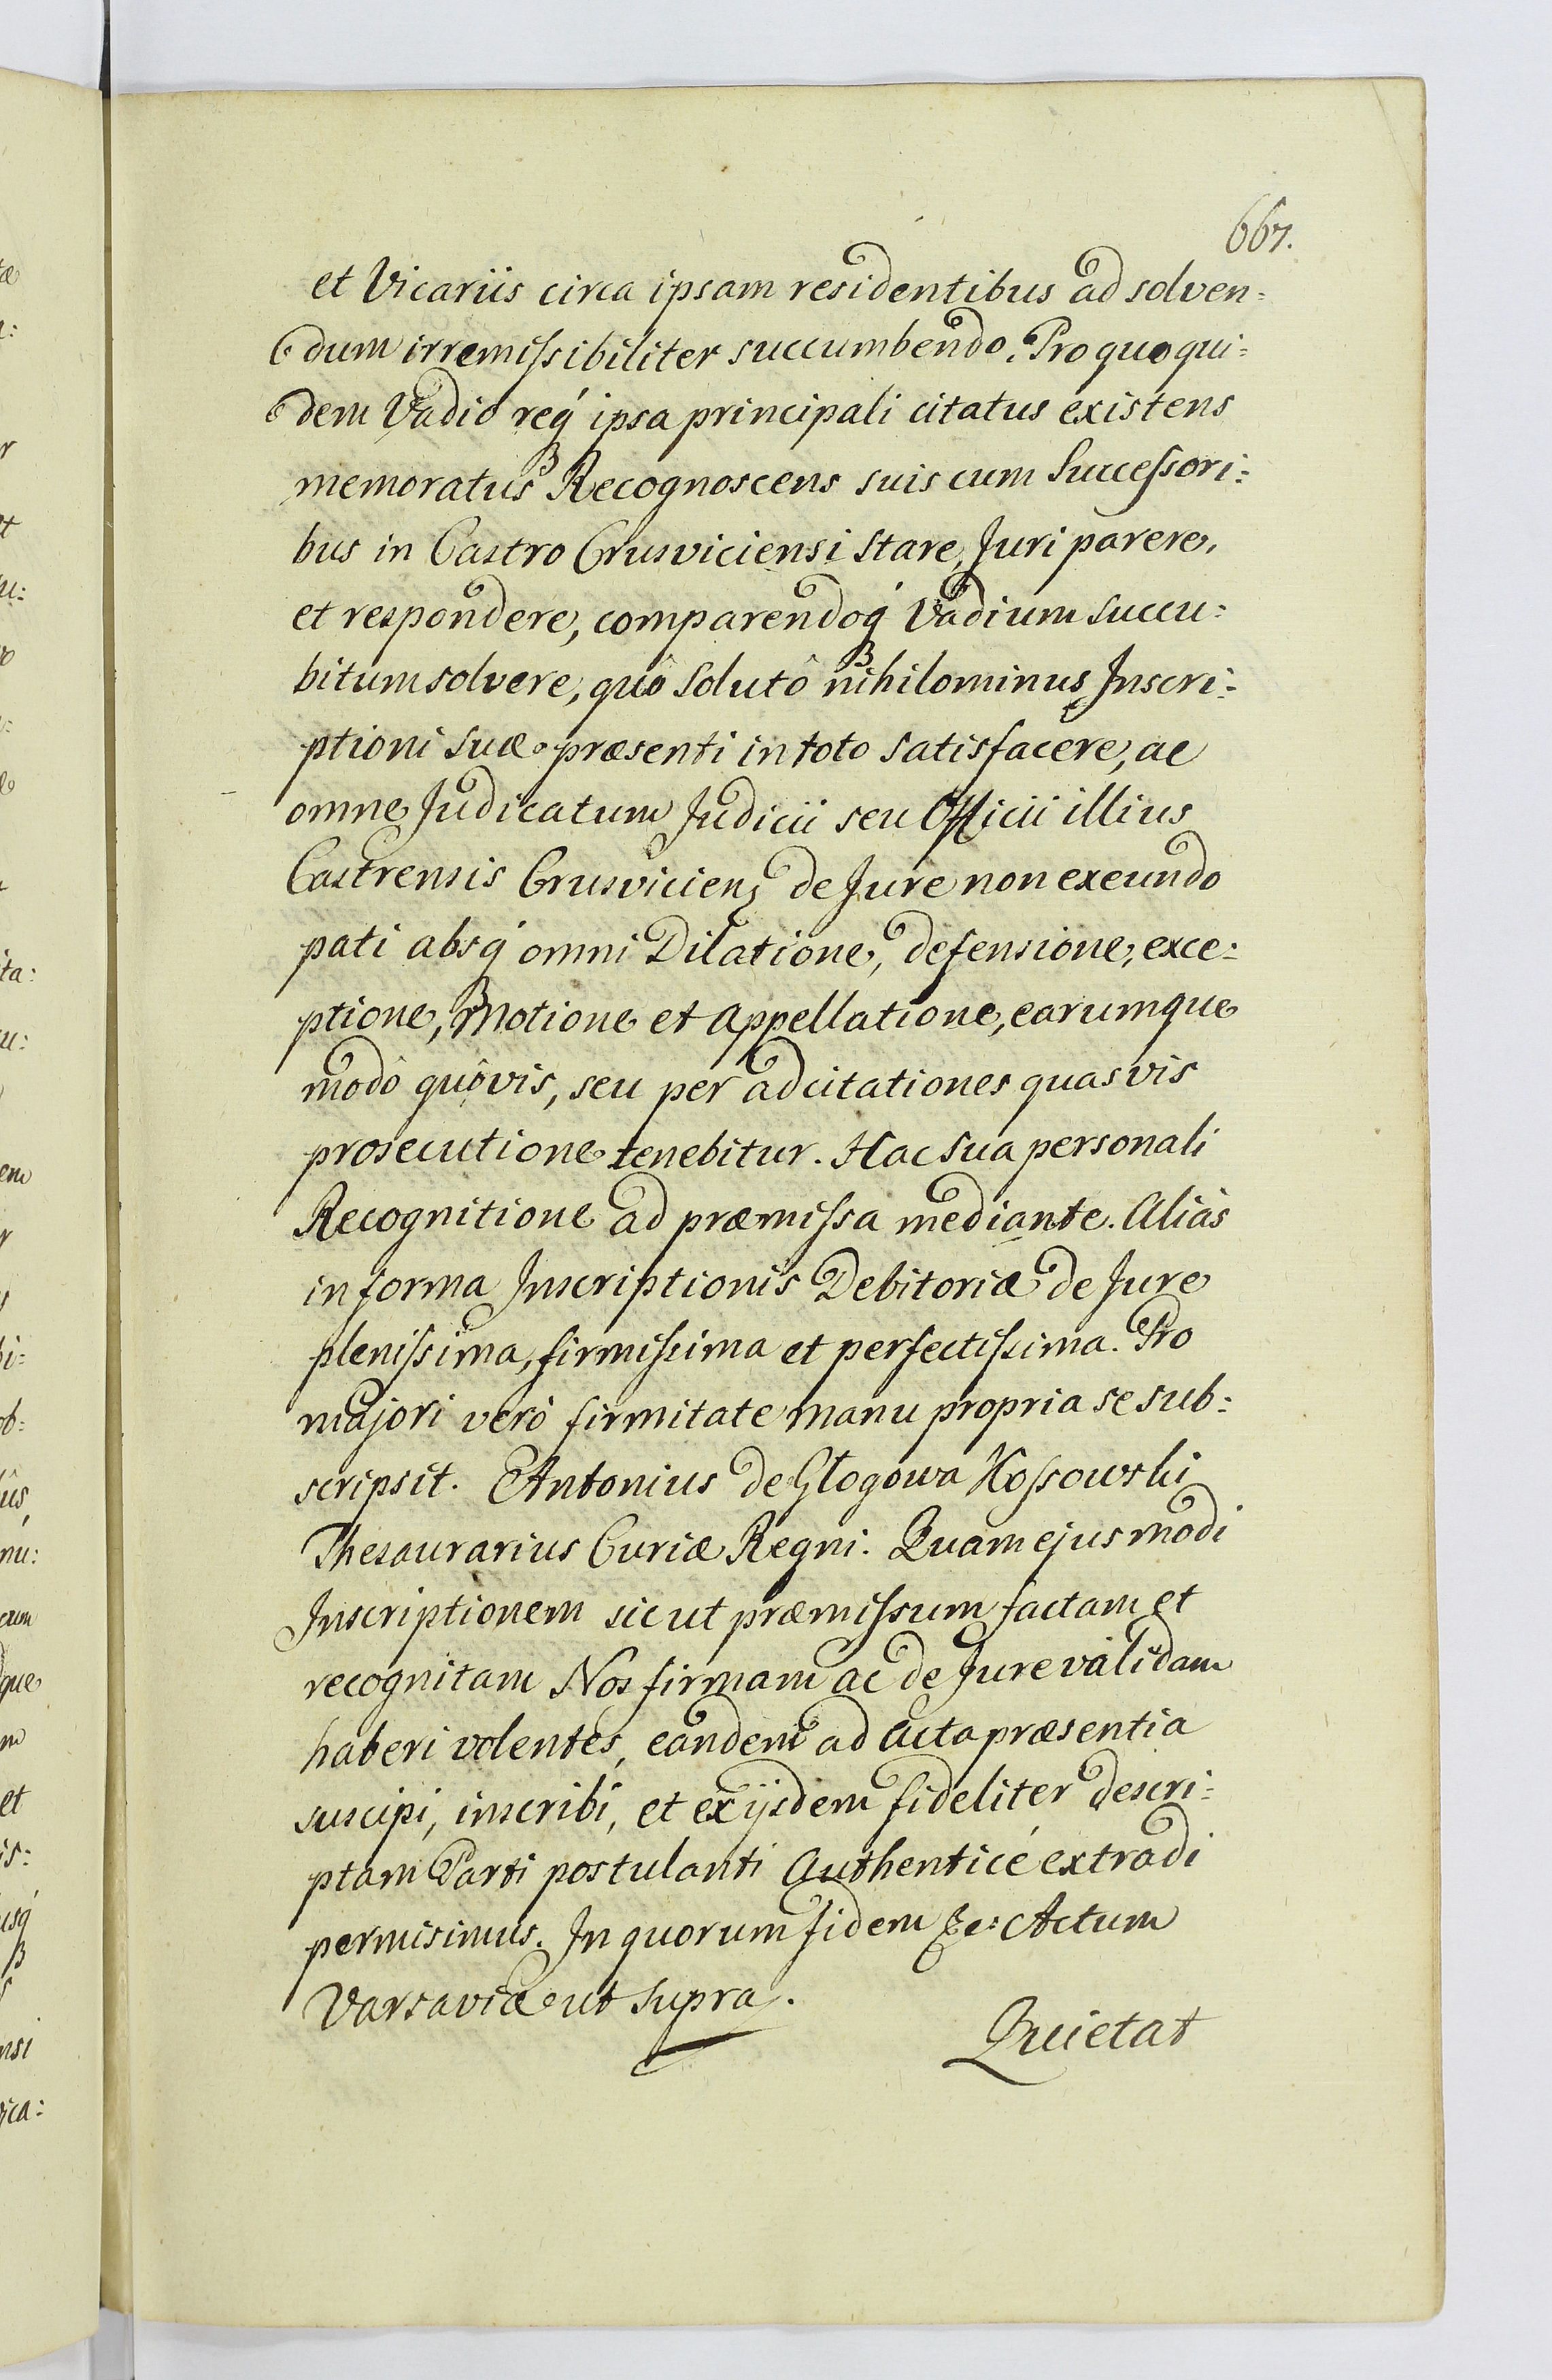 667.
et Vicariis circa ipsam residentibus ad solven=
dum irremissibiliter succumbendo. Pro quo qui=
dem Vadio req́ ipsa principali citatus existens
memoratus Recognoscens suis cum Successori=
bus in Castro Crusviciensi stare, Juri parere,
et respondere, comparendoq́ Vadium succu=
bitum solvere, quô solutô nihilominus Inscri=
ptioni suæ præsenti in toto satisfacere, ac
omne Judicatum Judicii seu Officii illius
Castrensis Crusvicienß de Jure non exeundo
pati absq́ omni Dilatione, defensione, exce=
ptione, Motione et Appellatione, earumque
modô quôvis, seu per adcitationes quasvis
prosecutione tenebitur. Hac sua personali
Recognitione ad præmissa mediante. Aliàs
in forma Inscriptionis Debitoriæ de Jure
plenissima, firmissima et perfectissima. Pro
majori verò firmitate manu propria se sub=
scripsit. Antonius de Głogowa Kossowski
Thesaurarius Curiæ Regni. Quam ejusmodi
Inscriptionem sicut præmissum factam et
recognitam Nos firmam ac de Jure validam
haberi volentes, eandem ad Acta præsentia
suscipi, inscribi, et ex ijsdem fideliter descri=
ptam Parti postulanti Authenticé extradi
permisimus. In quorum fidem &c: Actum
Varsaviæ ut supra.
Quietat